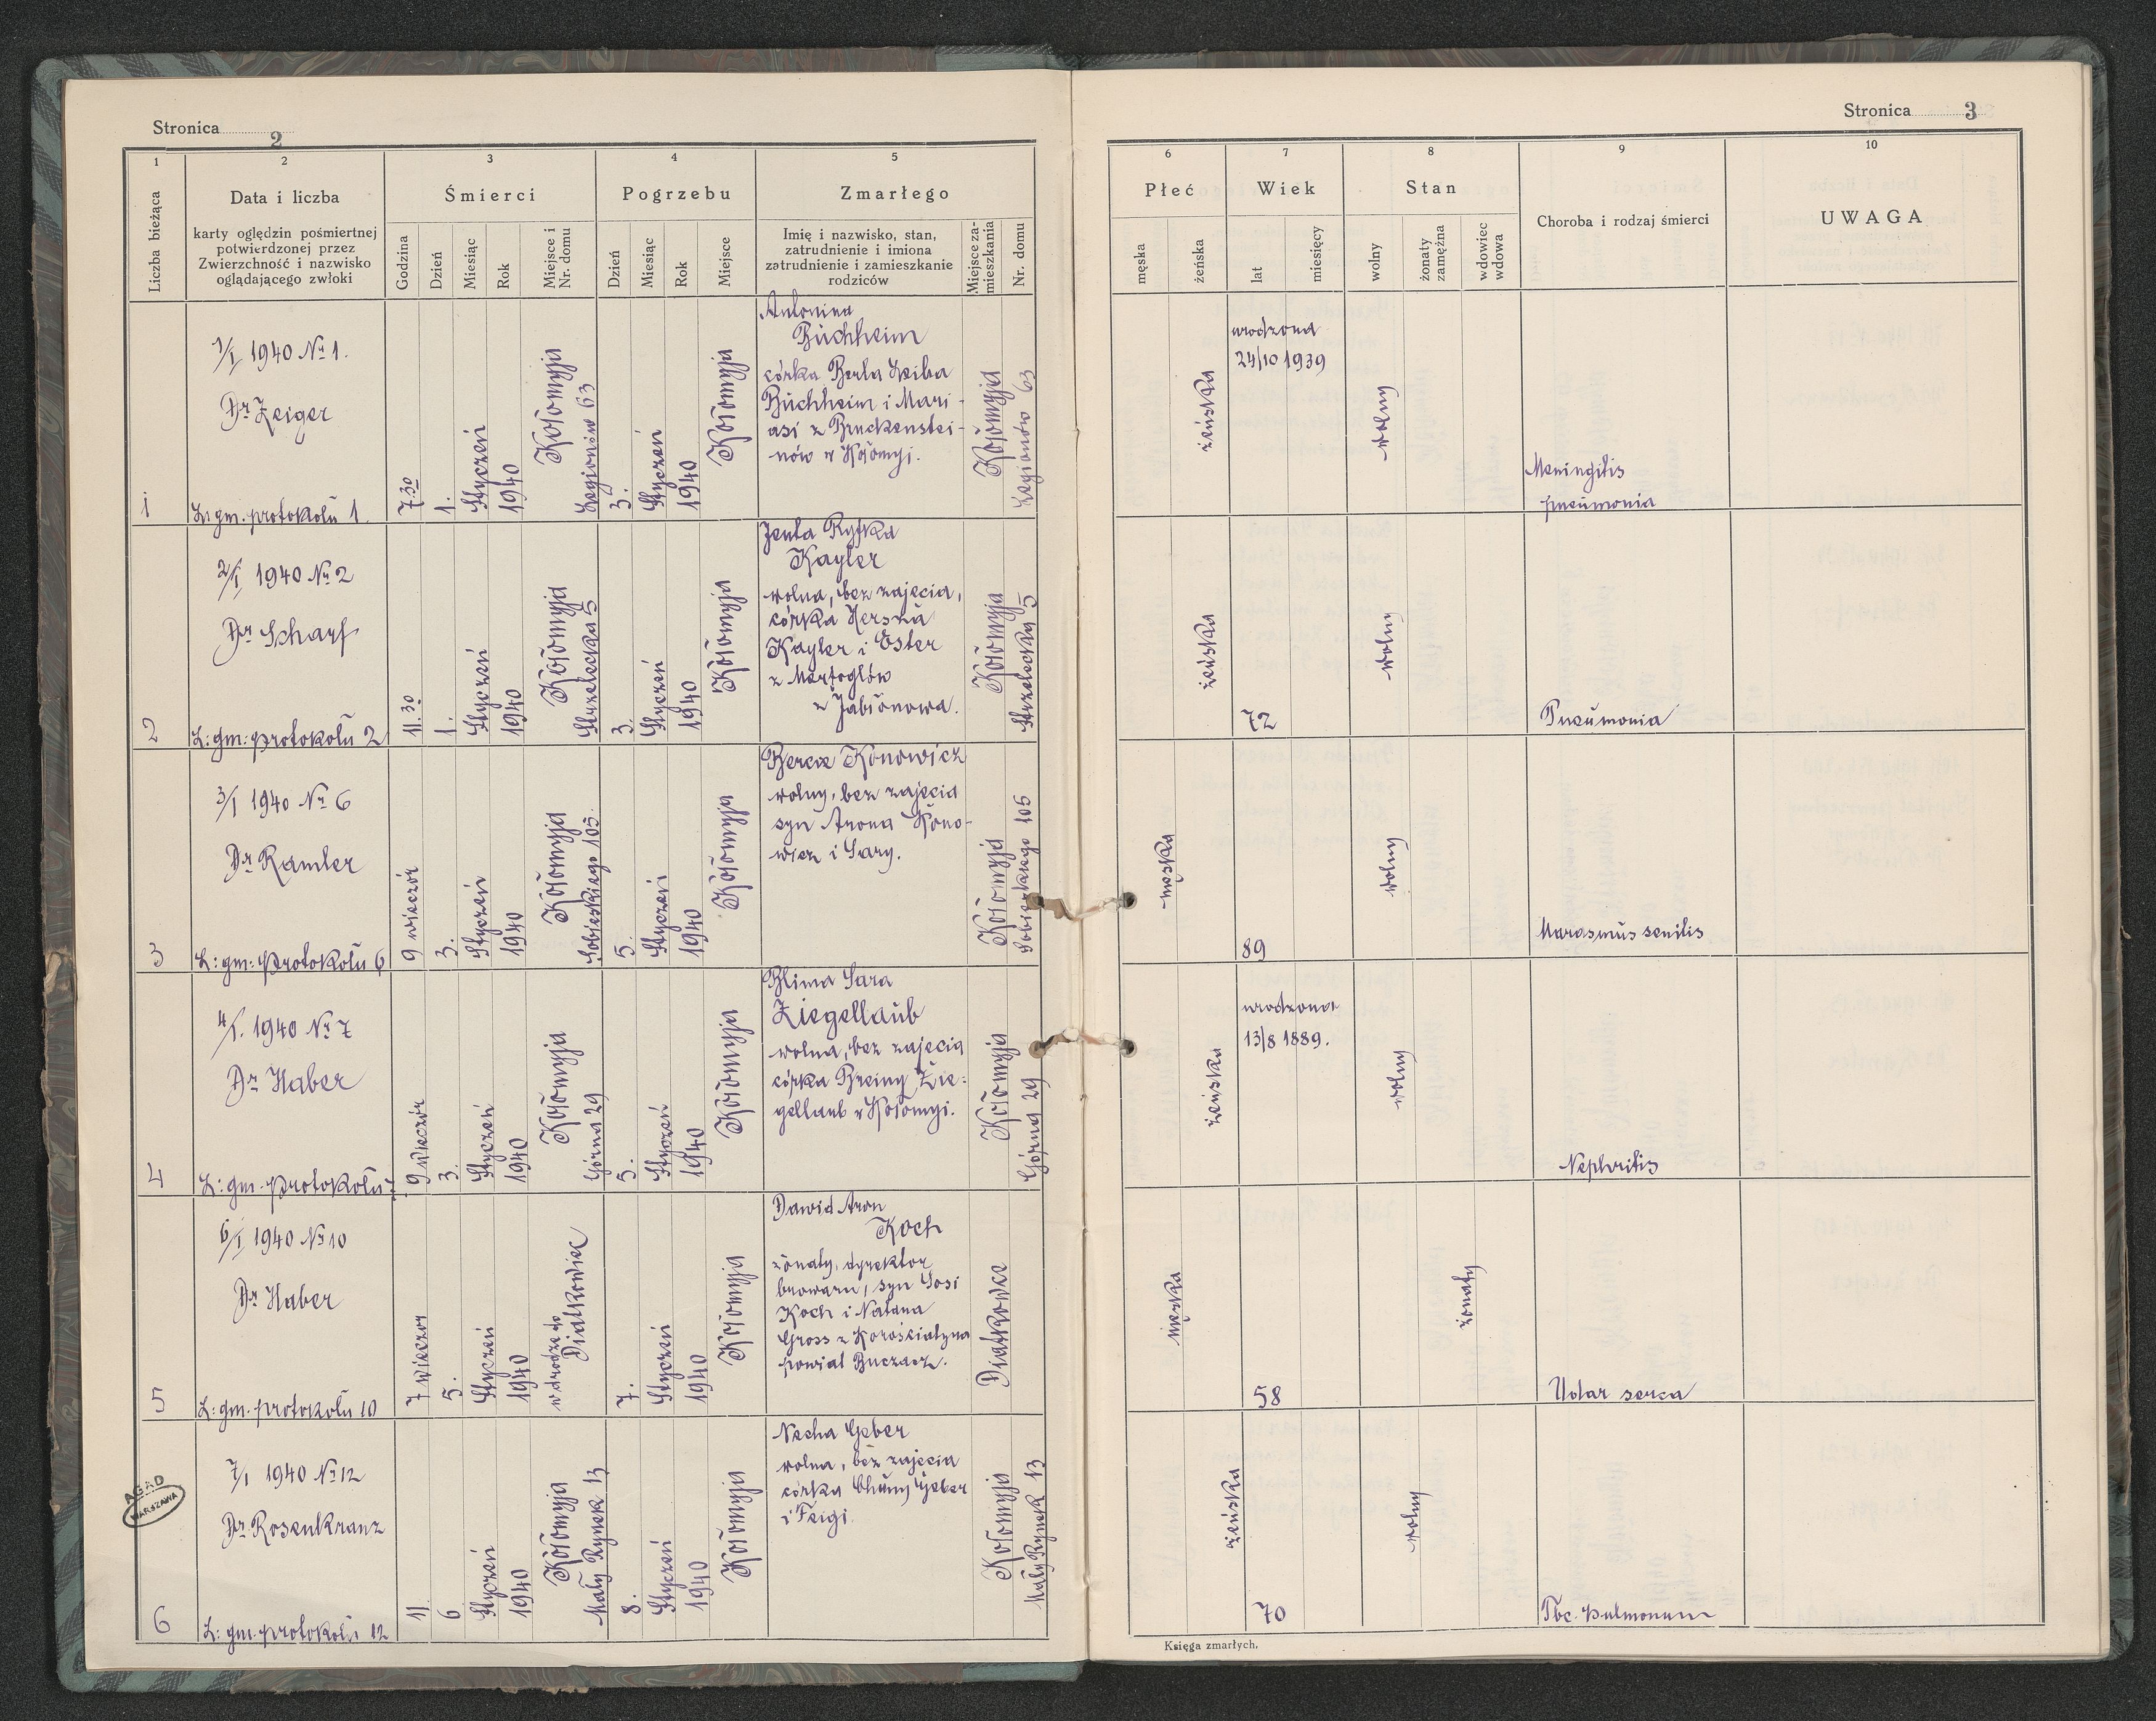 Stronica 2
1
2
3
4
5
Liczba bieżąca
Data i liczba
karty oględzin pośmiertnej
potwierdzonej przez
Zwierzchność i nazwisko
oglądającego zwłoki
Śmierci
Godzina
Dzień
Miesiąc
Rok
Miejsce i
Nr. domu
Pogrzebu
Dzień
Miesiąc
Rok
Miejsce
Zmarłego
Imię i nazwisko, stan,
zatrudnienie i imiona
zatrudnienie i zamieszkanie
rodziców
Miejsce za-
mieszkania
Nr. domu
1
1/I 1940 № 1.
Dr Zeiger
L: gm. protokołu 1
7 30
1.
Styczeń
1940
Kołomyja
Legionów 63
3.
Styczeń
1940
Kołomyja
Antonina
Buchheim
córka Berla Leiba
Buchheim i Mari-
asi z Bruckenstei-
nów w Kołomyi.
Kołomyja
Legionów 63
2
2/I 1940 № 2
Dr Scharf
L: gm: protokołu 2
11.30
1.
Styczeń
1940
Kołomyja
Strzelecka 5
3.
Styczeń
1940
Kołomyja
Jenta Ryfka
Kayler
wolna, bez zajęcia,
córka Hersza
Kayler i Ester
z
z Jabłonowa.
Kołomyja
Strzelecka 5
3
3/I 1940 № 6
Dr Ramler
L: gm: protokołu 6
9 wieczór
3.
Styczeń
1940
Kołomyja
Sobieskiego 105
5.
Styczeń
1940
Kołomyja
Konowicz
wolny, bez zajęcia
syn Arona Kono-
wicz i Sary.
Kołomyja
Sobieskiego 105
4
4/I. 1940 № 7
Dr Haber
L: gm. protokołu 7
9 wieczór
3.
Styczeń
1940
Kołomyja
Górna 29
5.
Styczeń
1940
Kołomyja
Blima Sara
Ziegellaub
wolna, bez zajęcia
córka Breiny Zie:
gellaub w Kołomyi.
Kołomyja
Górna 29
5
6/I 1940 № 10
Dr Haber
L: gm. protokołu 10
7 wieczor
5.
Styczeń
1940
w drodze do
Diatkowiec
7.
Styczeń
1940
Kołomyja
Dawid Aron
Koch
żonaty, dyrektor
browaru, syn Sosi
Koch i Natana
Gross z Korościatyna
powiat Buczacz.
Diatkowce
6
7/I 1940 № 12
Dr Rosenkranz
L: gm. protokołu 12
11
6
Styczeń
1940
Kołomyja
Mały Rynek 13
8.
Styczeń
1940
Kołomyja
Necha Geber
wolna, bez zajęcia
córka Chuny Geber
i Feigi
Kołomyja
Mały Rynek 13
AGAD
WARSZAWA
Stronica 3
6
7
8
9
10
Płeć
męska
żeńska
Wiek
lat
miesięcy
Stan
wolny
żonaty
zamężna
wdowiec
wdowa
Choroba i rodzaj śmierci
UWAGA
żeńska
urodzona
24/10 1939
wolny
Meningitis
pneumonia
żeńska
72
wolny
Pneumonia
męska
89
wolny
Marasmus senilis
żeńska
urodzona
13/8 1889.
wolny
Nephritis
męska
58
żonaty
Udar serca
żeńska
70
wolny
Tbc. pulmonum
Księga zmarłych.